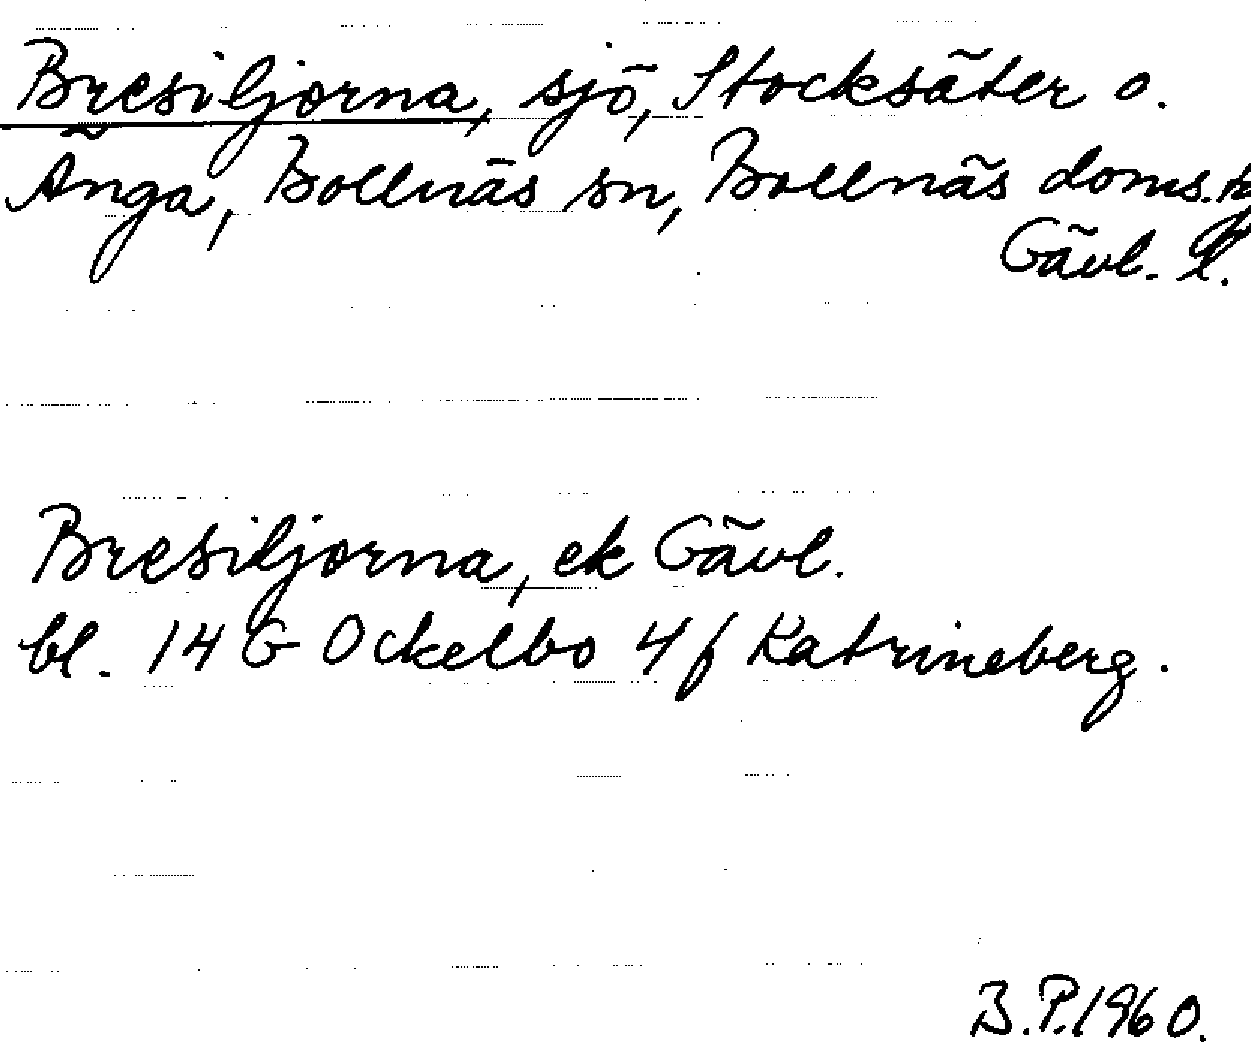 Bresiljorna, sjö, Stocksäter o.
Änga, Bollnäs sn, Bollnäs doms.
Gävl. l.
Bresiljorna, ek Gävl.
bl. 14 G Ockelbo 4 f Katrineberg.
B.P. 1960.